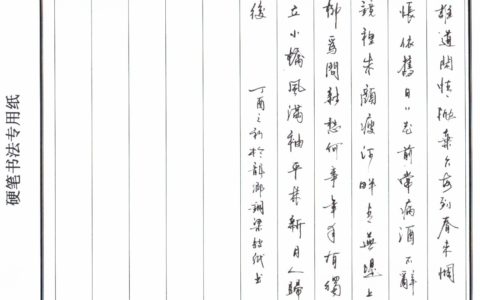 誰道閒情拋棄久每到春来惆
悵依舊日〃花前常病酒不辭
鏡裡朱顏瘦河畔青蕪堤上
柳為問新愁何事年年有獨
立小橋風滿袖平林新月人歸
後
丁酉之秋於
硬笔书法专用纸